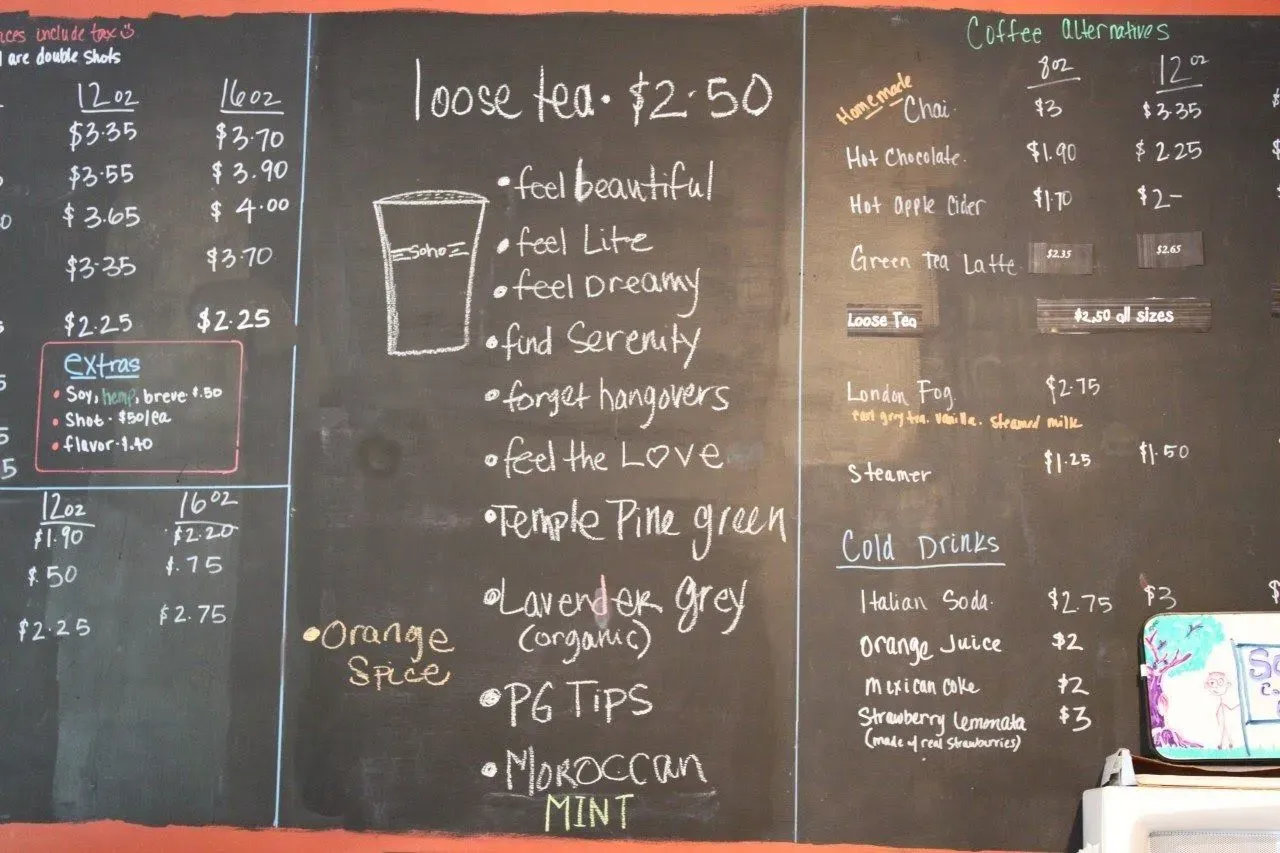 ces include tax
are double shots
12oz 16oz
$3.35 $3.70
$3.55 $3.90
$3.65 $4.00
$3.35 $3.70
$2.25 $2.25
extras
• Soy, hemp, breve $.50
• Shot - $50/ea
• flavor - $.40
12oz 16oz
$1.90 $2.20
$.50 $.75
$2.25 $2.75
loose tea • $2.50
Soho
• feel beautiful
• feel Lite
• feel Dreamy
• find Serenity
• forget hangovers
• feel the LOVE
• Temple Pine green
• Lavender grey
(organic)
• Orange
Spice
• PG Tips
• Moroccan
MINT
Coffee Alternatives
8oz 12oz
Homemade Chai. $3 $3.35
Hot Chocolate. $1.90 $2.25
Hot Apple Cider $1.70 $2-
Green Tea Latte $2.35 $2.65
Loose Tea $2.50 all sizes
London Fog $2.75
earl grey tea. vanilla. steamed milk
Steamer $1.25 $1.50
Cold Drinks
Italian Soda. $2.75 $3
Orange Juice $2
Mexican Coke $2
Strawberry Lemonata $3
(made of real strawburries)